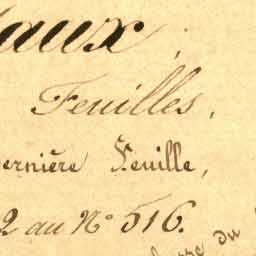 aux,
Feuilles,
ernière Feuille,
2 au N° 516.
du